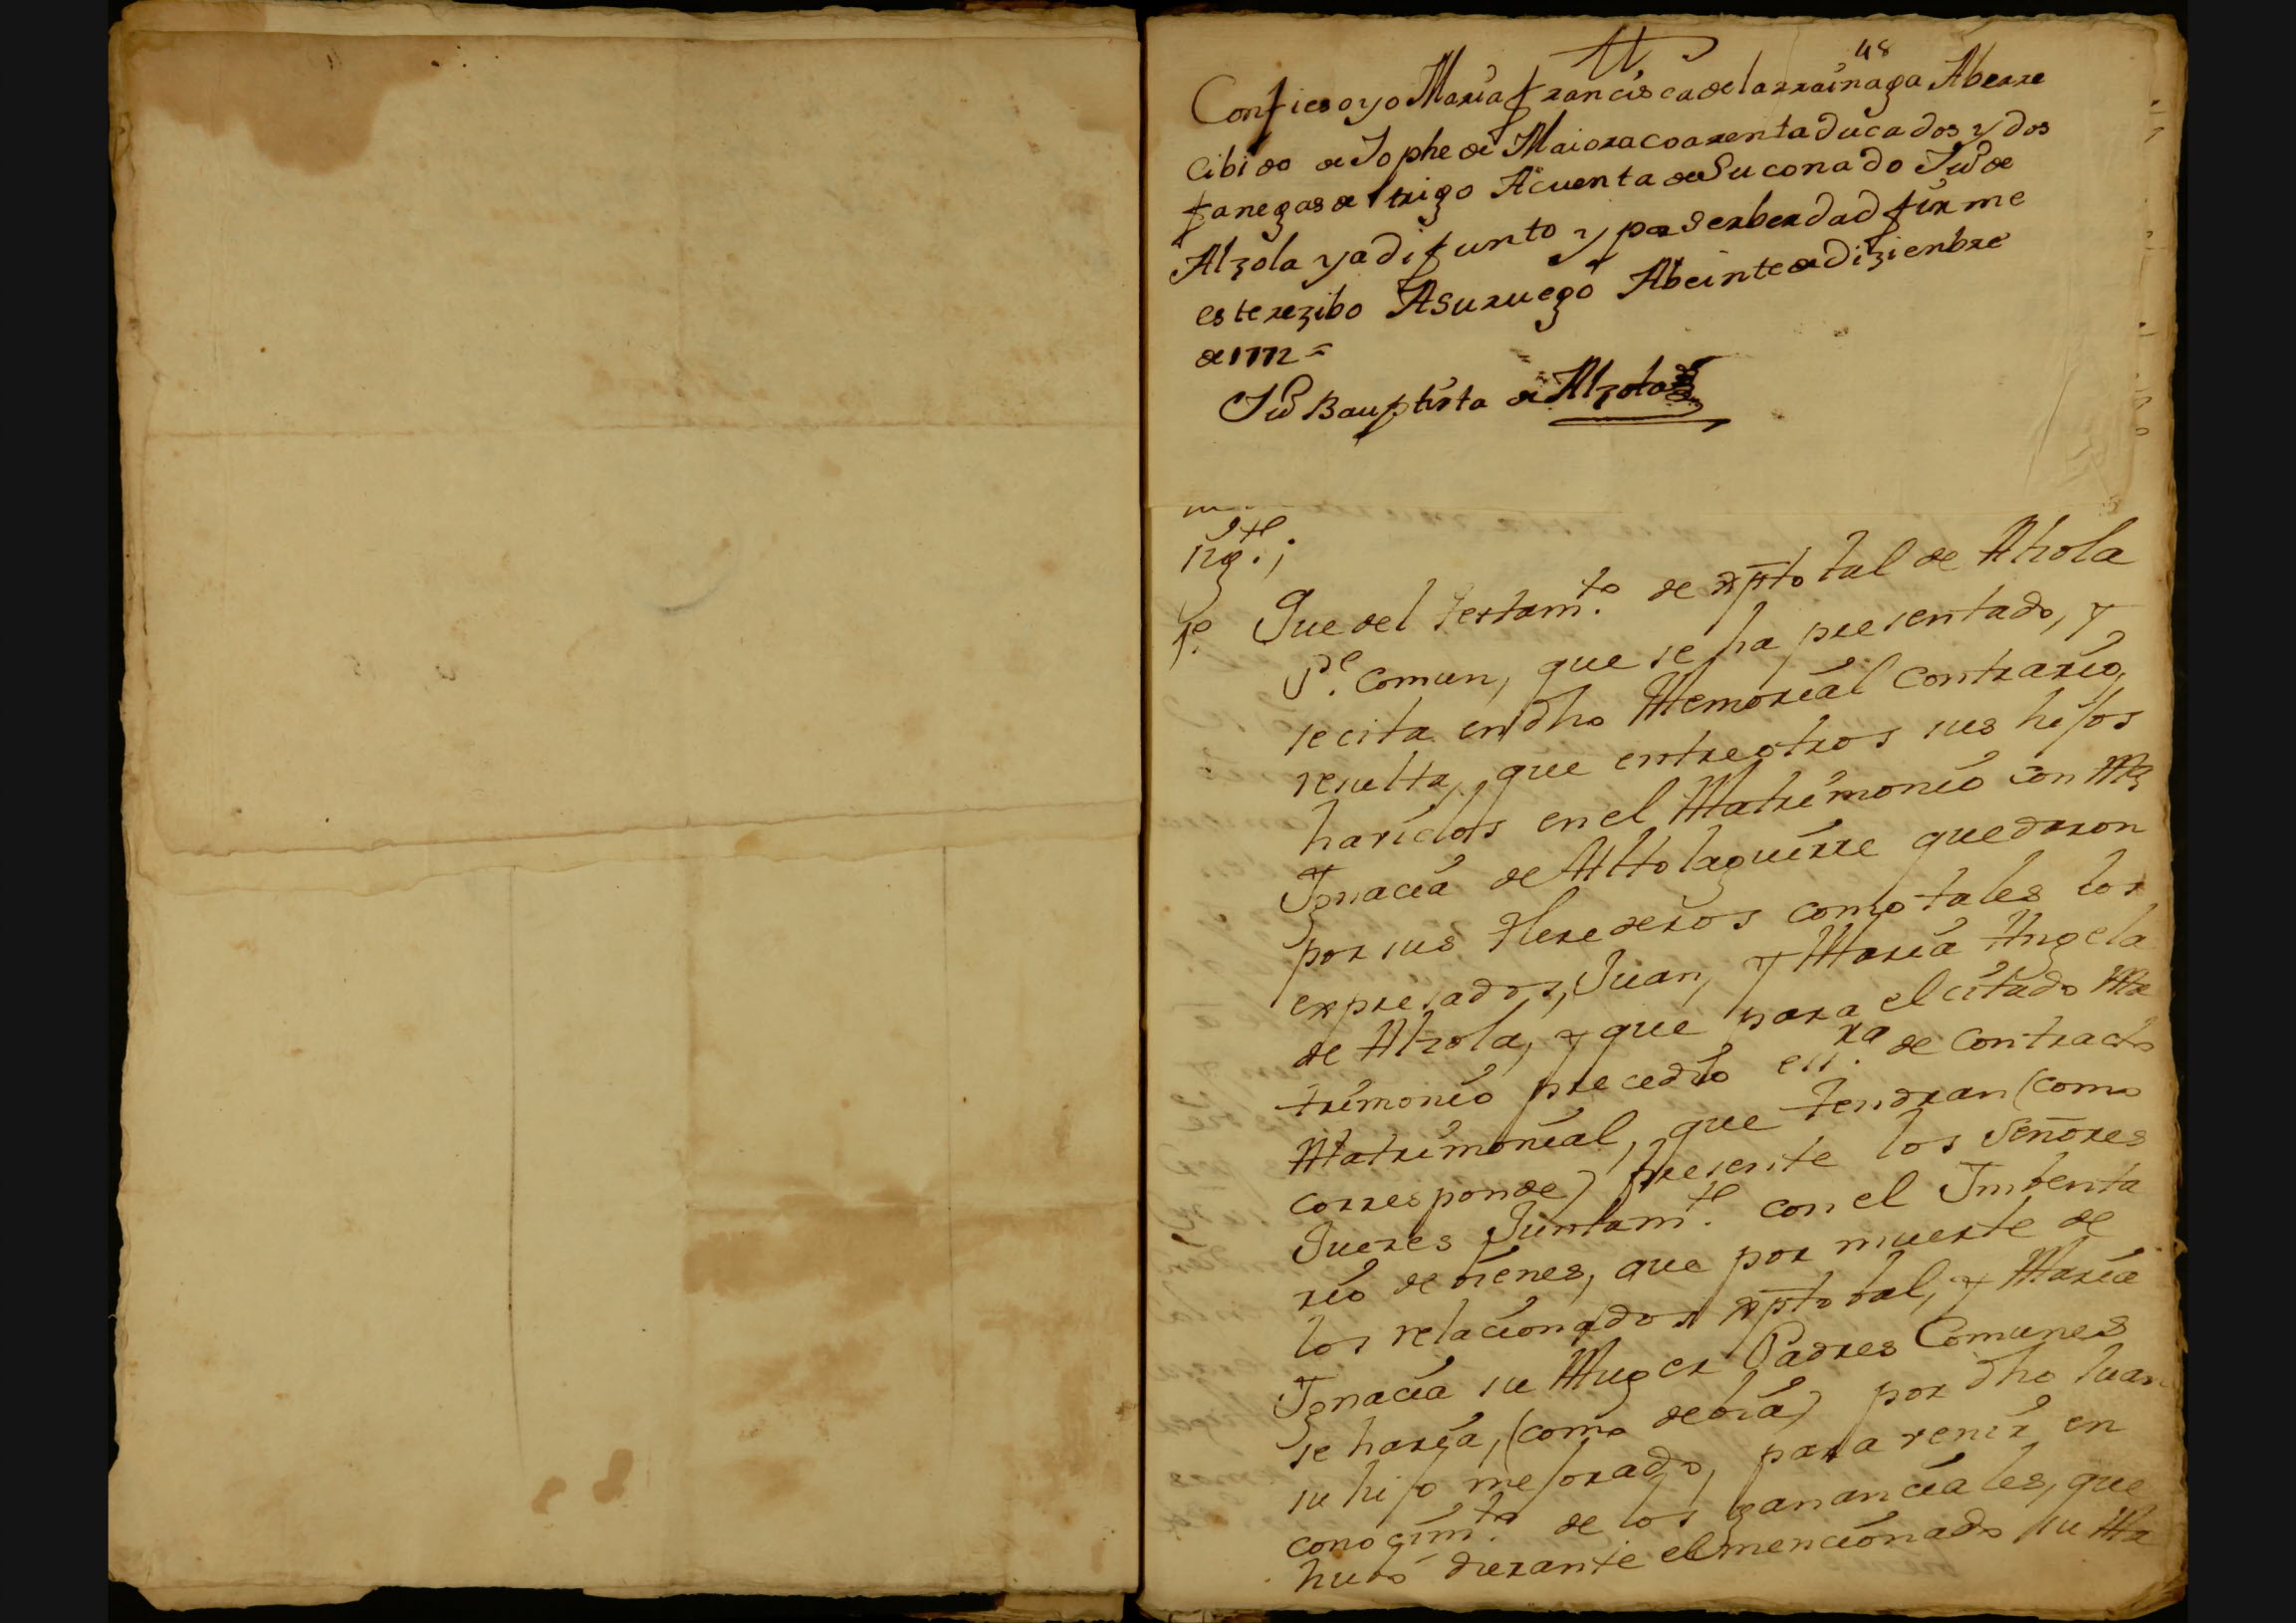 48
Confieso yo Maria francisca de larrainaga Aberre
cibido de Jophe de Maiora coarenta ducados y dos
fanegas de trigo A cuenta de Su conado Juº de
Alzola ya difunto y por ser berdad firme
este rezibo A su ruego A beinte de dizienbre
de 1772 =
Juº Bauptista de Alzola
1º. Que del testamto. de xptobal de Alzola
Pe. Comun, que se ha presentado, y
se cita en dho Memorial Contrario,
resulta, que entre otros sus hijos
havidos en el Matrimonio con Mª
Ignacia de Altolaguirre quedaron
por sus Herederos como tales los
expresados, Juan, y Maria Angela
de Alzola, y que para el citado Ma
trimonio precedio essra. de Contracto
Matrimonial, que tendran (como
corresponde) presente los Señores
Juezes Juntamte. con el Imbenta
rio de bienes, que por muerte de
los relacionados xptobal, y Maria
Ignacia su Muger Padres Comunes
se haria, (como debia) por dho Juan
su hijo mejorado, para venir en
conocimto. de los gananciales, que
hubo durante el mencionado su Ma